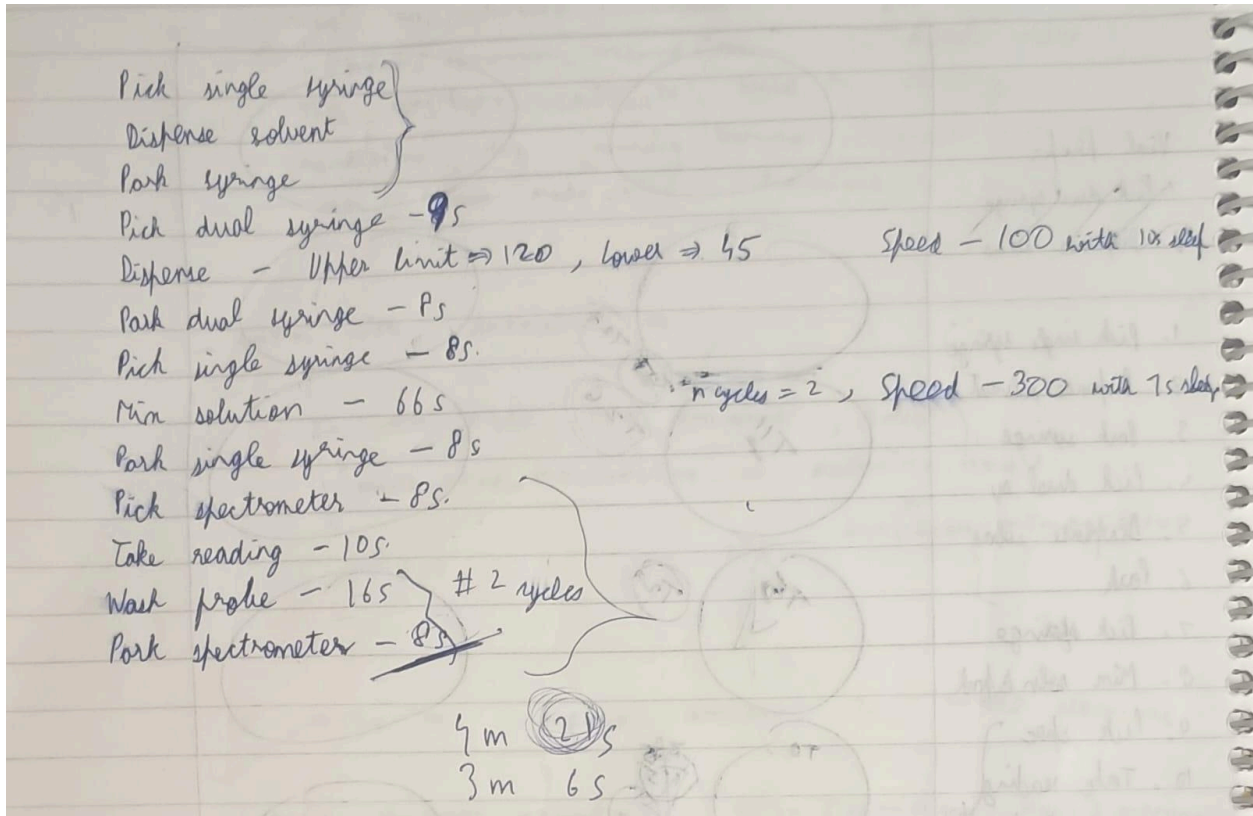 Pick single syringe
Dispense solvent
Park syringe
Pick dual syringe - 9s
Dispense - Upper limit ⇒ 120 , lower ⇒ 45 Speed - 100 with 10s sleep
Park dual syringe - 8s
Pick single syringe - 8s.
Mix solution - 66s n cycles = 2 , Speed - 300 with 7s sleep
Park single syringe - 8s
Pick spectrometer - 8s.
Take reading - 10s.
Wash probe - 16s # 2 cycles
Park spectrometer - 8s
4 m 21s
3 m 6s